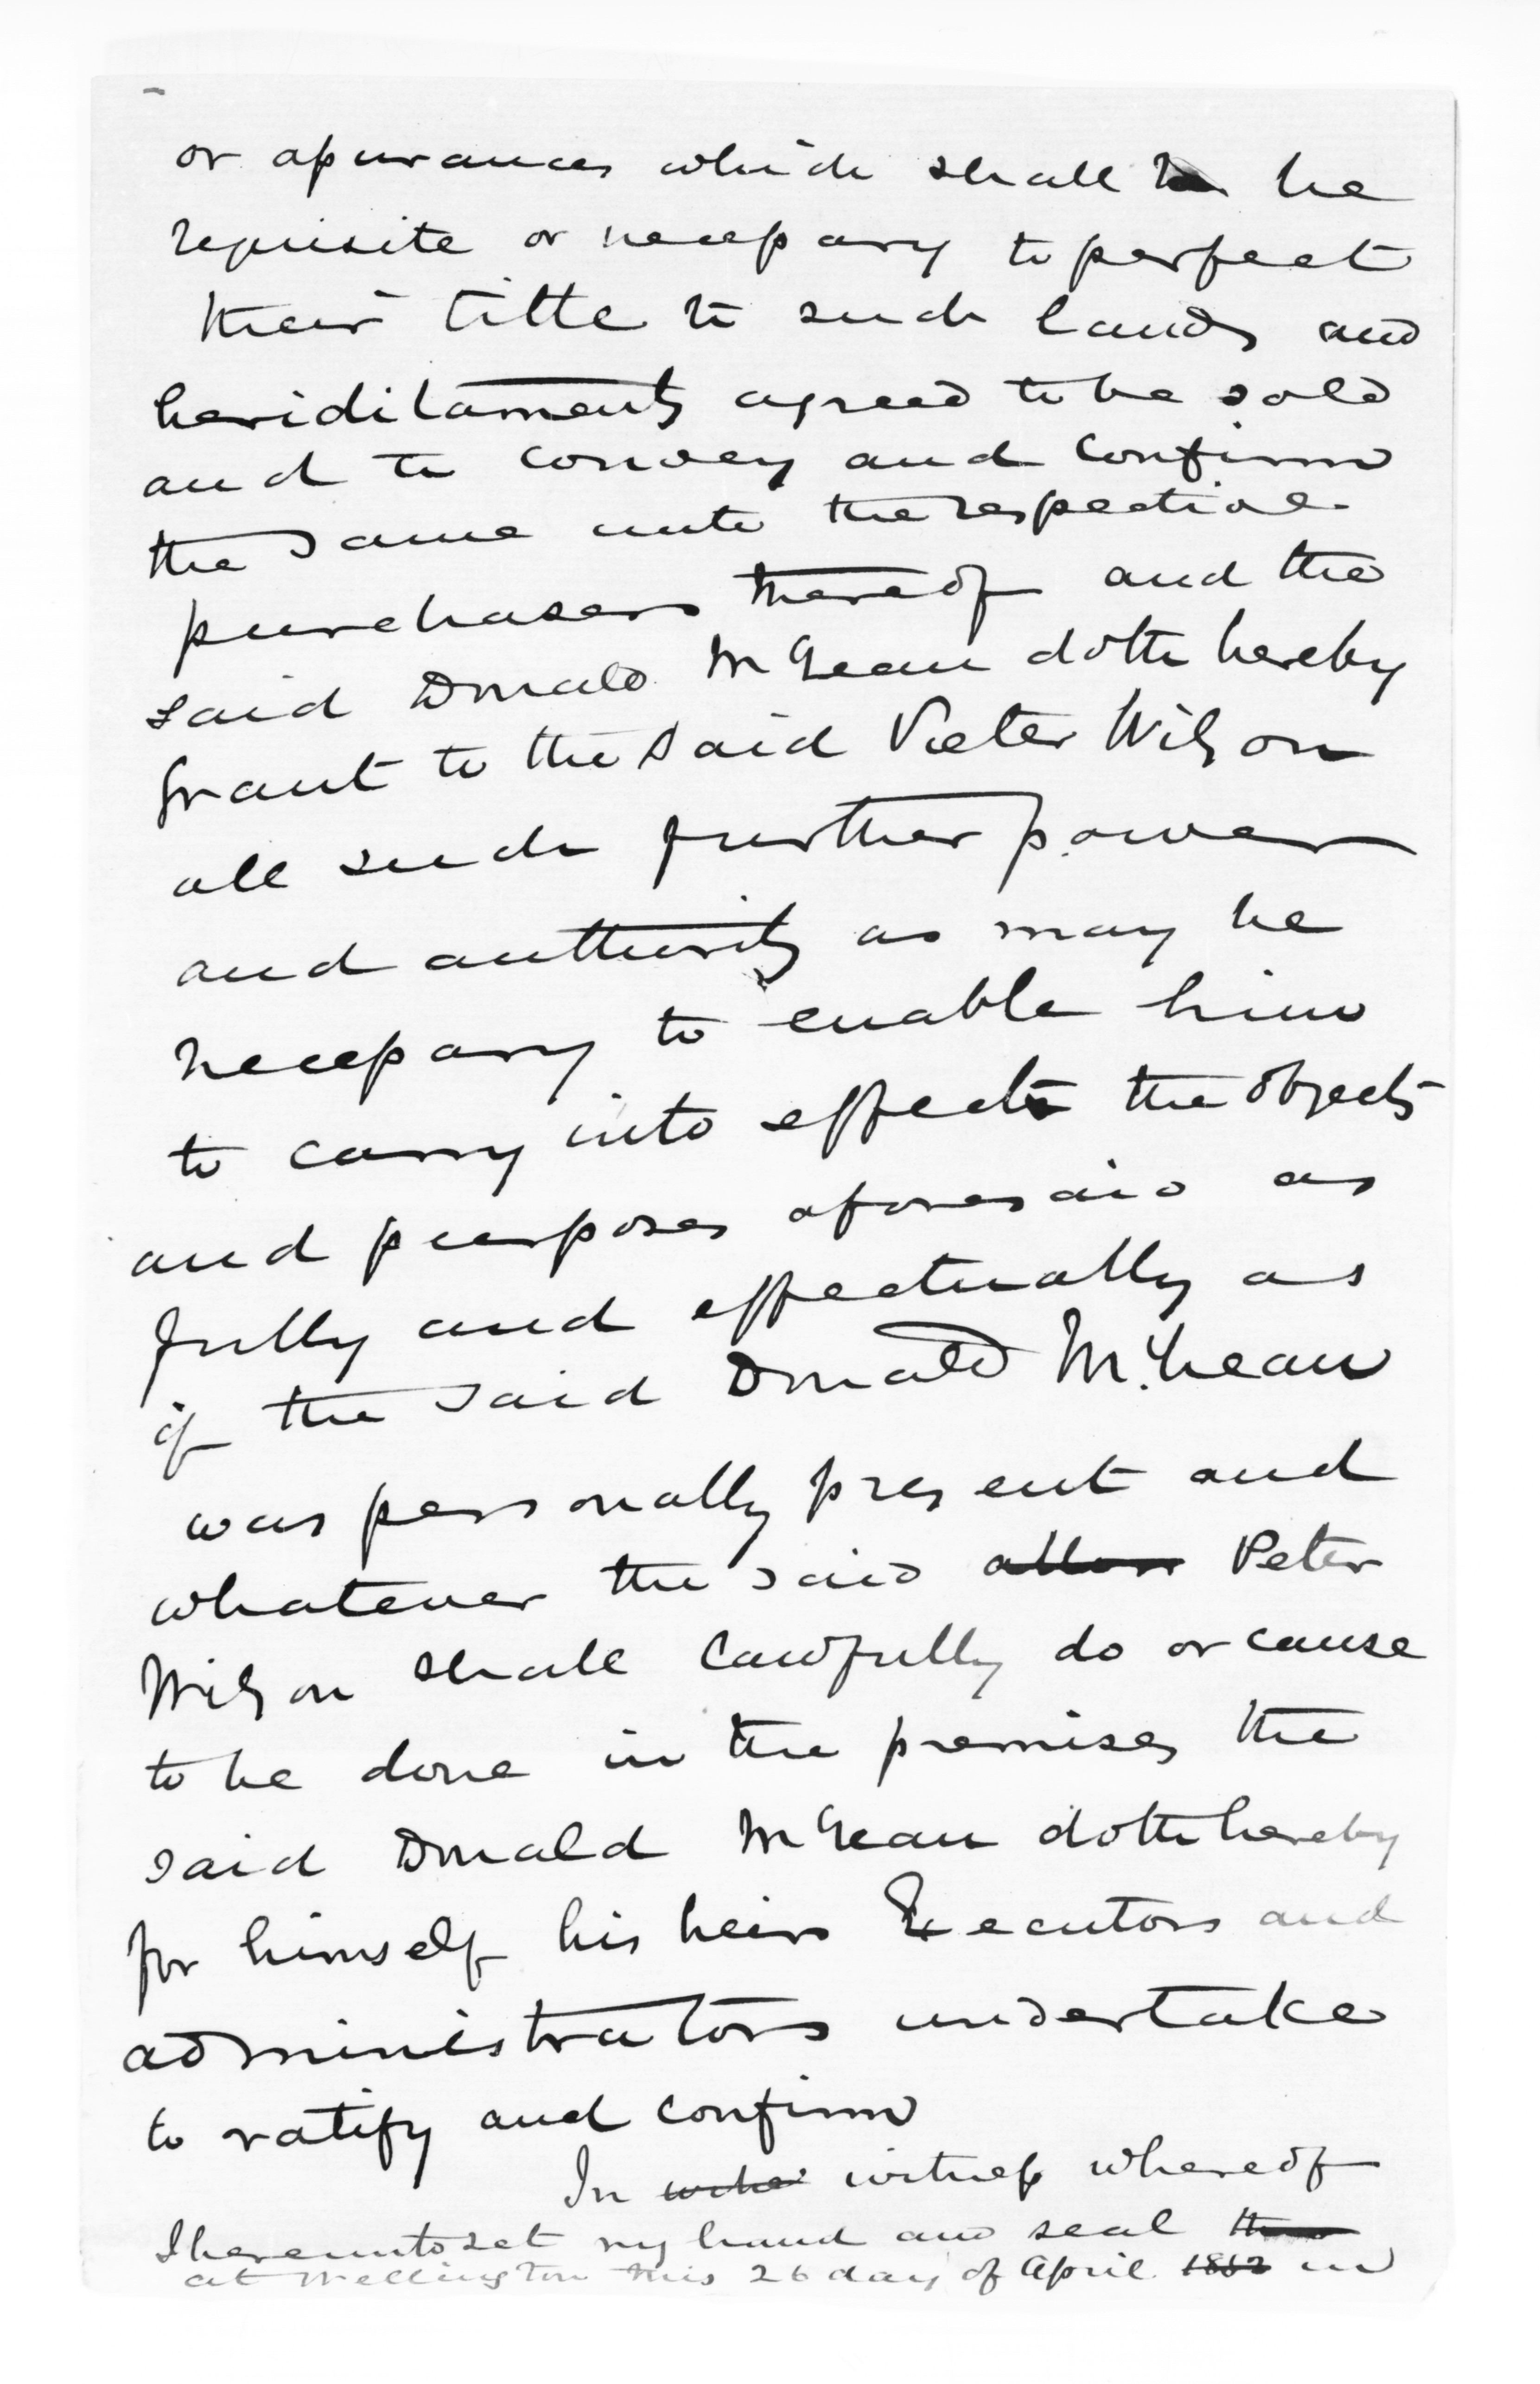 or assurances which shall be be
requisite or necessary to perfect
their title to such lands and
heriditaments agreed to be sold
and to convey and confirm
the same unto the respective
purchasers thereof and the
said Donald McLean doth hereby
Grant to the said Peter Wilson
all such further power
and authority as may be
necessary to enable him
to carry into effect the objects
and purposes aforesaid as
fully and effectually as
if the said Donald McLean
was personally present and
whatever the said Peter
Wilson shall lawfully do or cause
to be done in the premises the
said Donald McLean doth hereby
for himself his heirs Executors and
administrators undertake
to ratify and confirm
In witness whereof
I hereunto set my hand and seal
at Wellington this 26 day of April 1862 in